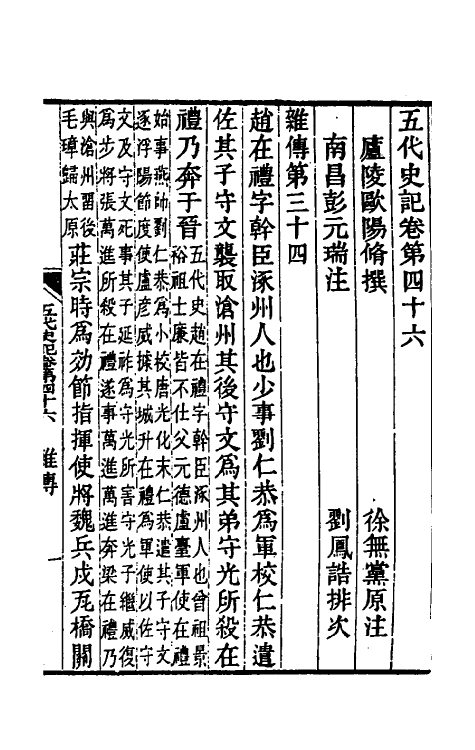 五代史記卷第四十六
廬陵歐陽脩撰 徐無黨原注
南昌彭元瑞注 劉鳳誥排次
雜傳第三十四
趙在禮字幹臣涿州人也少事劉仁恭爲軍校仁恭遣
佐其子守文襲取滄州其後守文爲其弟守光所殺在
禮乃奔于晉
五代史趙在禮字幹臣涿州人也曾祖景
裕祖士廉皆不仕父元德盧臺軍使在禮
始事燕帥劉仁恭爲小校唐光化末仁恭遣其子守文
逐浮陽節度使盧彦威據其城升在禮爲軍使以佐守
文及守文死事其子延祚爲守光所害守光子繼威復
爲步將張萬進所殺在禮遂事萬進萬進奔梁在禮乃
與滄州留後
毛璋歸太原
莊宗時爲効節指揮使將魏兵戍瓦橋關
五代史記卷第四十六 雜傳 一